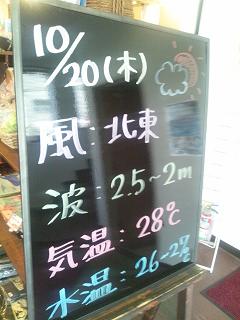 10/20(木)
風:北東
波:2.5~2m
気温:28℃
水温:26-27℃